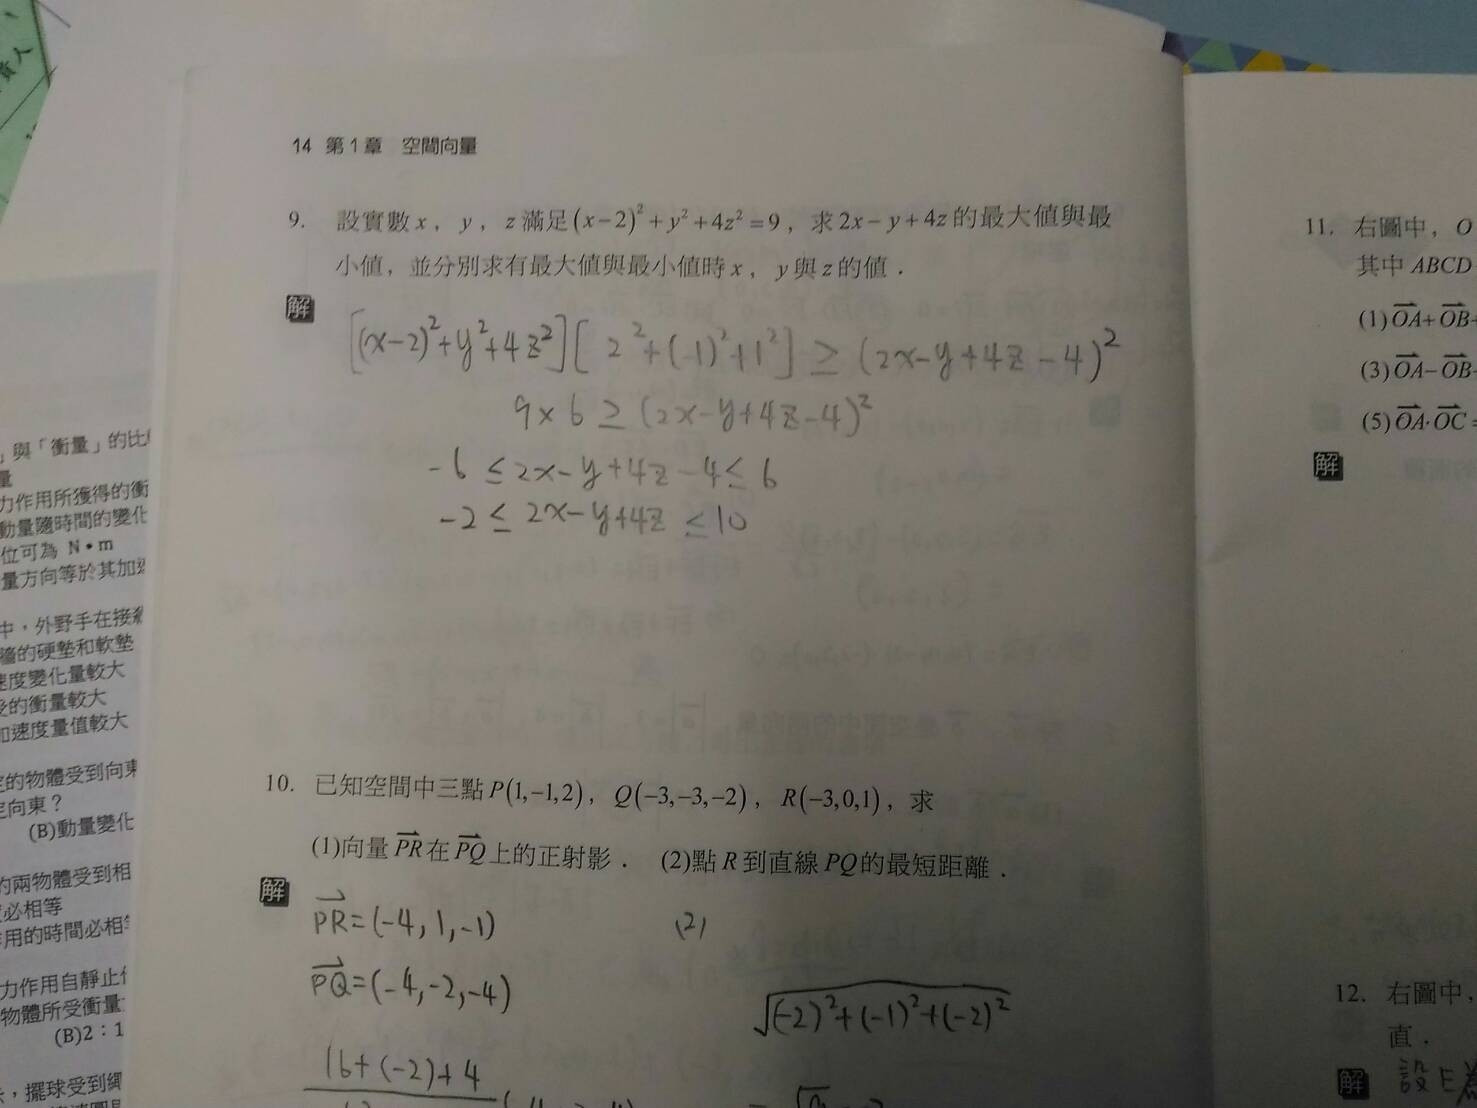 14 第1章 空間向量
9. 設實數x，y，z滿足(x-2)²+y²+4z²=9，求2x-y+4z的最大值與最
小值，並分別求有最大值與最小值時x，y與z的值．
解
[(x-2)²+y²+4z²][2²+(-1)²+1²] ≥ (2x-y+4z-4)²
9×6 ≥ (2x-y+4z-4)²
-6 ≤ 2x-y+4z-4 ≤ 6
-2 ≤ 2x-y+4z ≤ 10
10. 已知空間中三點P(1,-1,2)，Q(-3,-3,-2)，R(-3,0,1)，求
(1)向量PR在PQ上的正射影． (2)點R到直線PQ的最短距離．
解
PR=(-4,1,-1)
(2)
PQ=(-4,-2,-4)
√(-2)²+(-1)²+(-2)²
16+(-2)+4
11. 右圖中，O
其中ABCD
(1)OA+OB+
(3)OA-OB-
(5)OA·OC=
解
12. 右圖中，
直．
解 設E為
貴人
與「衝量」的比
量
力作用所獲得的衝
動量隨時間的變化
位可為 N•m
量方向等於其加速
中，外野手在接
牆的硬墊和軟墊
速度變化量較大
受的衝量較大
加速度量值較大
定的物體受到向東
定向東？
(B)動量變化
的兩物體受到相
必相等
作用的時間必相等
力作用自靜止
物體所受衝量
(B)2：1
，擺球受到細